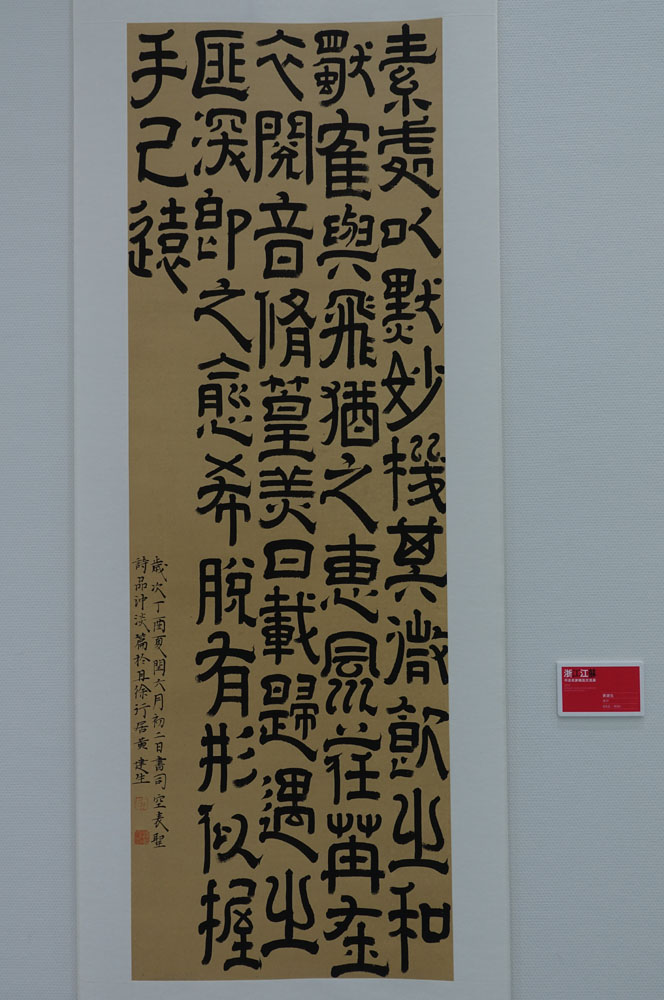 素處以默妙機其微飲之和
獨隺與飛猶之惠風荏苒在
衣閱音脩篁美曰載歸遇之
匪深即之愈希脫有形似握
手已違
歲次丁酉夏閏六月初二日書司空表聖
詩品沖淡篇於丹徐行居黃建生
浙江